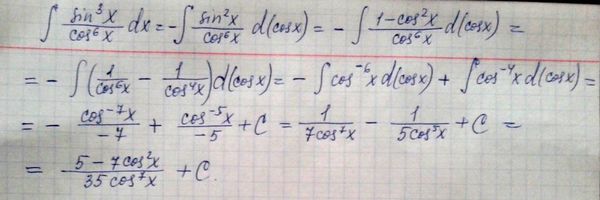 ∫ sin³x/cos⁶x dx = -∫ sin²x/cos⁶x d(cosx) = -∫ (1-cos²x)/cos⁶x d(cosx) =
= -∫(1/cos⁶x - 1/cos⁴x)d(cosx) = -∫cos⁻⁶x d(cosx) + ∫cos⁻⁴x d(cosx) =
= - cos⁻⁷x/-7 + cos⁻⁵x/-5 + C = 1/7cos⁷x - 1/5cos⁵x + C =
= (5-7cos²x)/35cos⁷x + C.